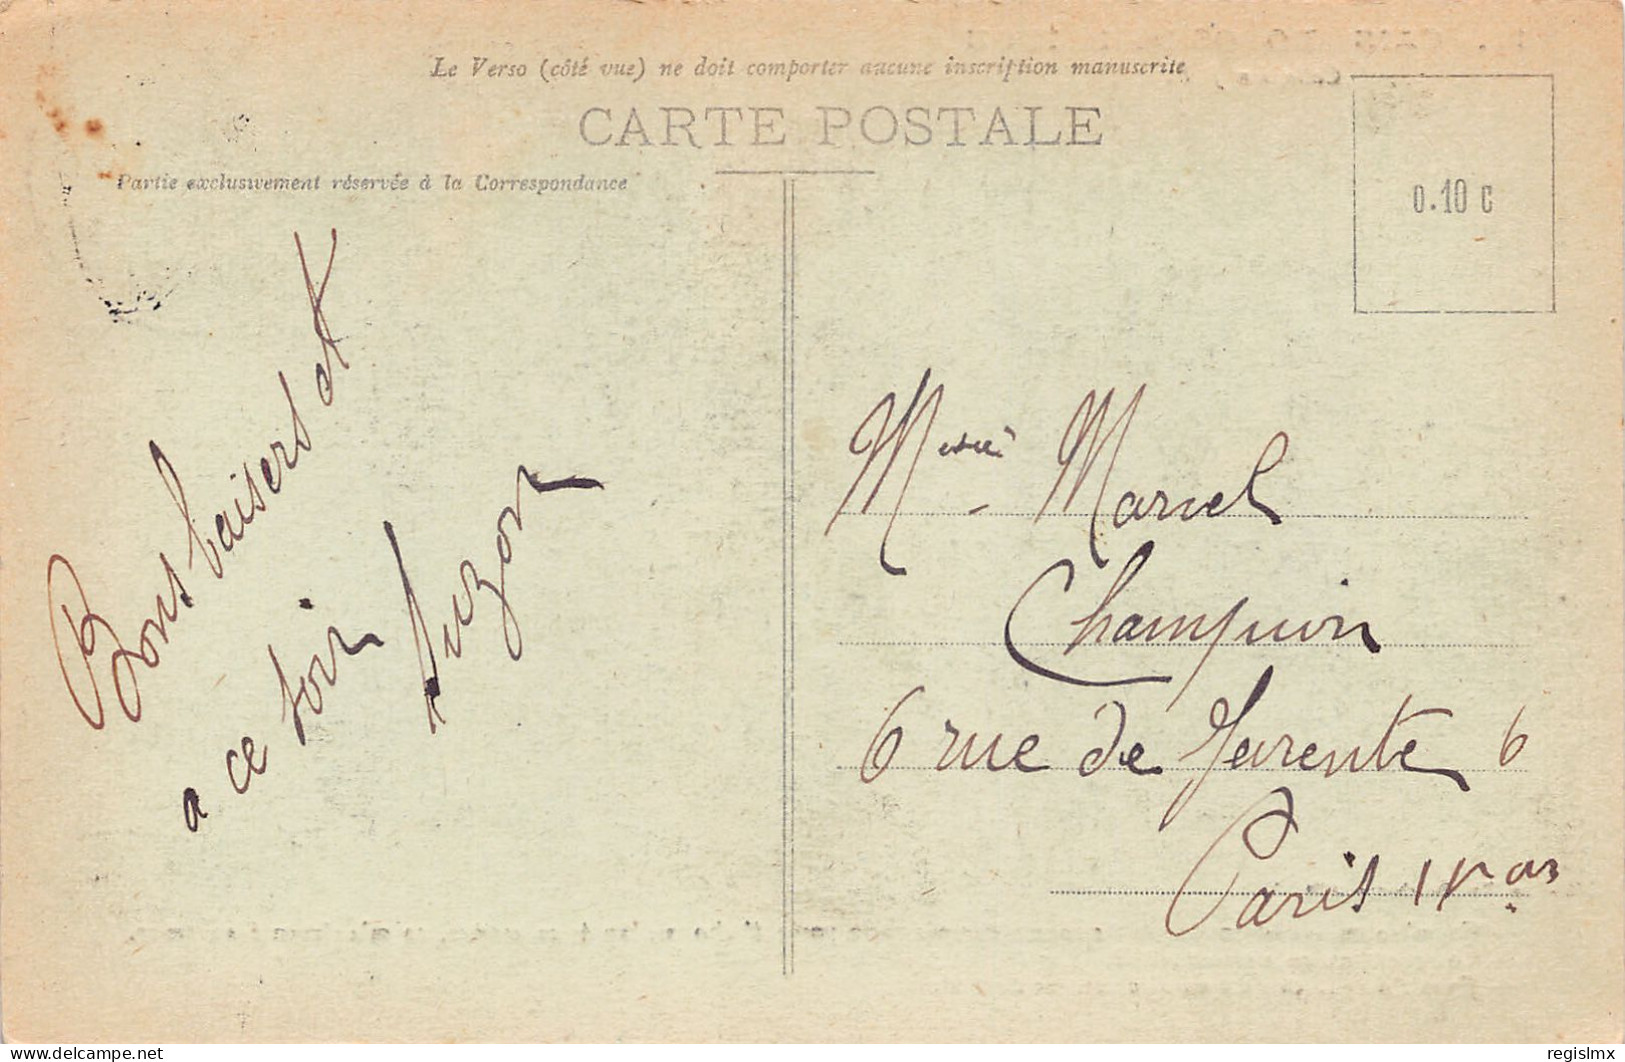 Le Verso (côté vue) ne doit comporter aucune inscription manuscrite
CARTE POSTALE
Partie exclusivement réservée à la Correspondance
0.10 C
Bons baisers et
a ce soir
Suzon
Marcel
6 rue de Jarente 6
Paris
delcampe.net
regislmx